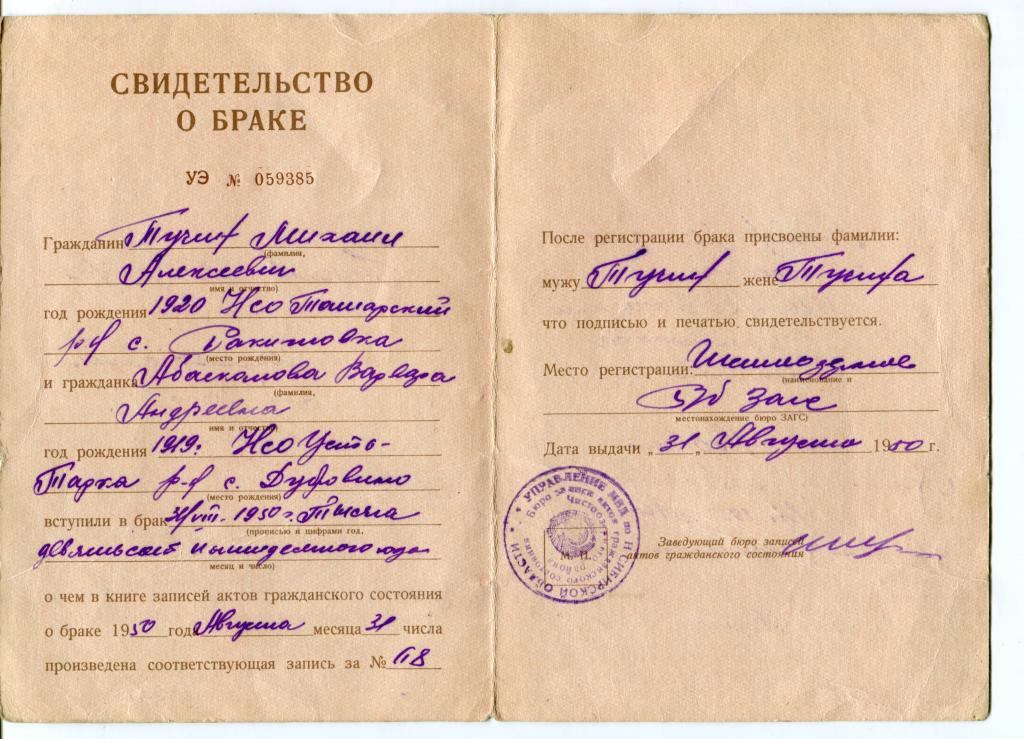 СВИДЕТЕЛЬСТВО
О БРАКЕ
УЭ № 059385
Гражданин Михаил
(фамилия,
Алексеевич
имя и отчество)
год рождения 1920 Нсо Татарский
р-н с. Ракитовка
(место рождения)
и гражданка Абаскалова Варвара
(фамилия,
Андреевна
имя и отчество)
год рождения 1919г. Нсо Усть-
Тарка р-н с. Дубровино
(место рождения)
вступили в брак 31/VIII. 1950 г. Тысяча
(прописью и цифрами год,
девятьсот пятидесятого года
месяц и число)
о чем в книге записей актов гражданского состояния
о браке 1950 года Августа месяца 31 числа
произведена соответствующая запись за №
После регистрации брака присвоены фамилии:
мужу жене
что подписью и печатью свидетельствуется.
Место регистрации:
(наименование и
Загс
местонахождение бюро ЗАГС)
Дата выдачи „31„ Августа 1950 г.
УПРАВЛЕНИЕ МВД по Н-СИБИРСКОЙ ОБЛАСТИ
Бюро записи актов гражданского состояния
М. П.
Заведующий бюро записей
актов гражданского состояния